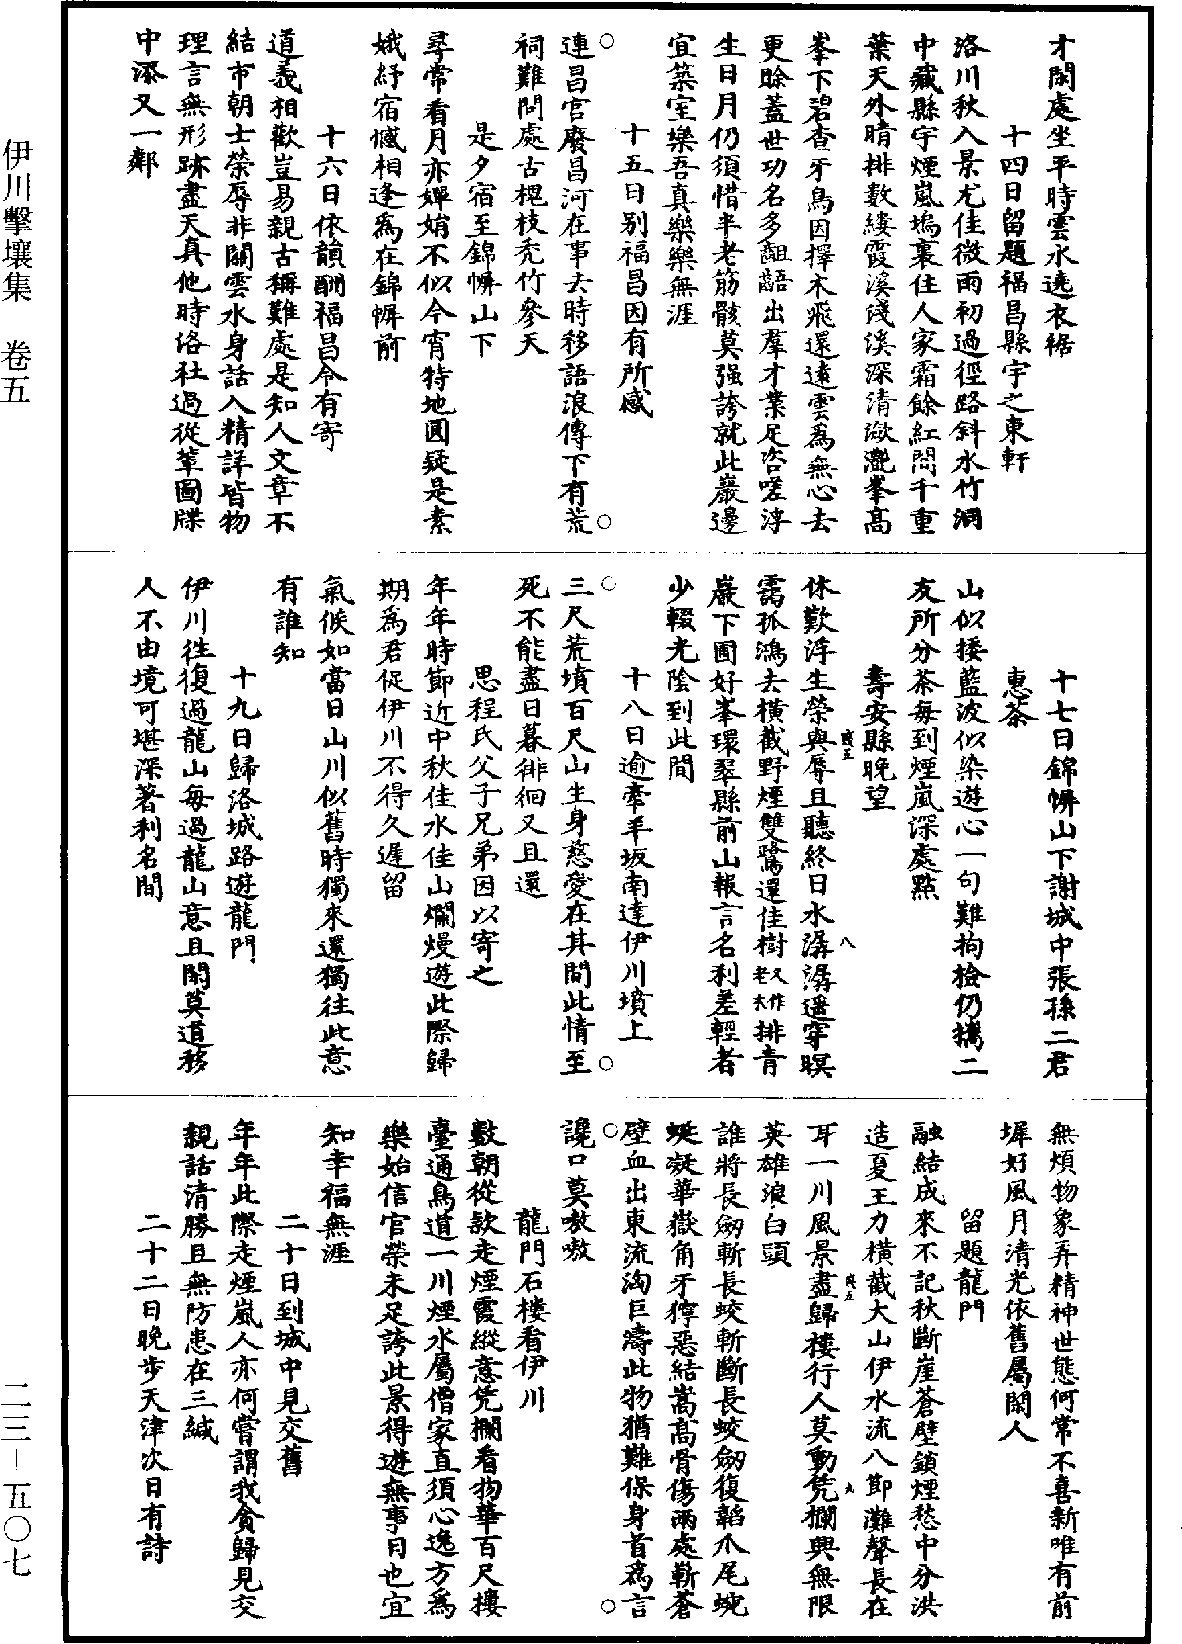 才閑處坐平時雲水遶衣裾
十四日留題福昌縣宇之東軒
洛川秋入景尤佳微雨初過徑路斜水竹洞
中藏縣宇煙嵐塢裏住人家霜餘紅間千重
葉天外晴排數縷霞溪淺溪深清瀲灩峯高
峯下碧查牙鳥因擇木飛還遠雲為無心去
更賒蓋世功名多齟齬出羣才業足咨嗟浮
生日月仍須惜半老筋骸莫强誇就此巖邊
宜築室樂吾真樂樂無涯
十五日別福昌因有所感
連昌宮廢昌河在事去時移語浪傳下有荒
祠難問處古槐枝秃竹參天
是夕宿至錦幈山下
尋常看月亦嬋娟不似今宵特地圓疑是素
娥紓宿憾相逢為在錦幈前
十六日依韻酬福昌令有寄
道義相歡豈易親古稱難處是知人文章不
結市朝士榮辱非關雲水身話入精詳皆物
理言無形跡盡天真他時洛社過從輩圖牒
中添又一鄰
十七日錦幈山下謝城中張孫二君
惠茶
山似挼藍波似染遊心一句難拘檢仍攜二
友所分茶每到煙嵐深處點
壽安縣晚望
休歎浮生榮與辱且聽終日水潺潺遥穿暝
靄孤鴻去橫截野煙雙鷺還佳樹又作老夫排青
巖下圃好峯環翠縣前山報言名利差輕者
少輟光陰到此間
十八日逾牽羊坂南達伊川墳上
三尺荒墳百尺山生身慈愛在其間此情至
死不能盡日暮徘徊又且還
思程氏父子兄弟因以寄之
年年時節近中秋佳水佳山爛熳遊此際歸
期為君促伊川不得久遲留
氣候如當日山川似舊時獨來還獨往此意
有誰知
十九日歸洛城路遊龍門
伊川往復過龍山每過龍山意且閑莫道移
人不由境可堪深著利名間
無煩物象弄精神世態何常不喜新唯有前
墀好風月清光依舊屬閑人
留題龍門
融結成來不記秋斷崖蒼壁鎖煙愁中分洪
造夏王力橫截大山伊水流八節灘聲長在
耳一川風景盡歸樓行人莫動凭欄興無限
英雄浪白頭
誰將長劒斬長蛟斬斷長蛟劒復韜爪尾蜿
蜒凝華嶽角牙獰惡結嵩高骨傷兩處斬蒼
壁血出東流淘巨濤此物猶難保身首為言
讒口莫嗷嗷
龍門石樓看伊川
數朝從款走煙霞縱意凭欄看物華百尺樓
臺通鳥道一川煙水屬僧家直須心逸方為
樂始信官榮未足誇此景得遊無事日也宜
知幸福無涯
二十日到城中見交舊
年年此際走煙嵐人亦何嘗謂我貪歸見交
親話清勝且無防患在三緘
二十二日晚步天津次日有詩
伊川擊壤集　卷五
二三－五〇七